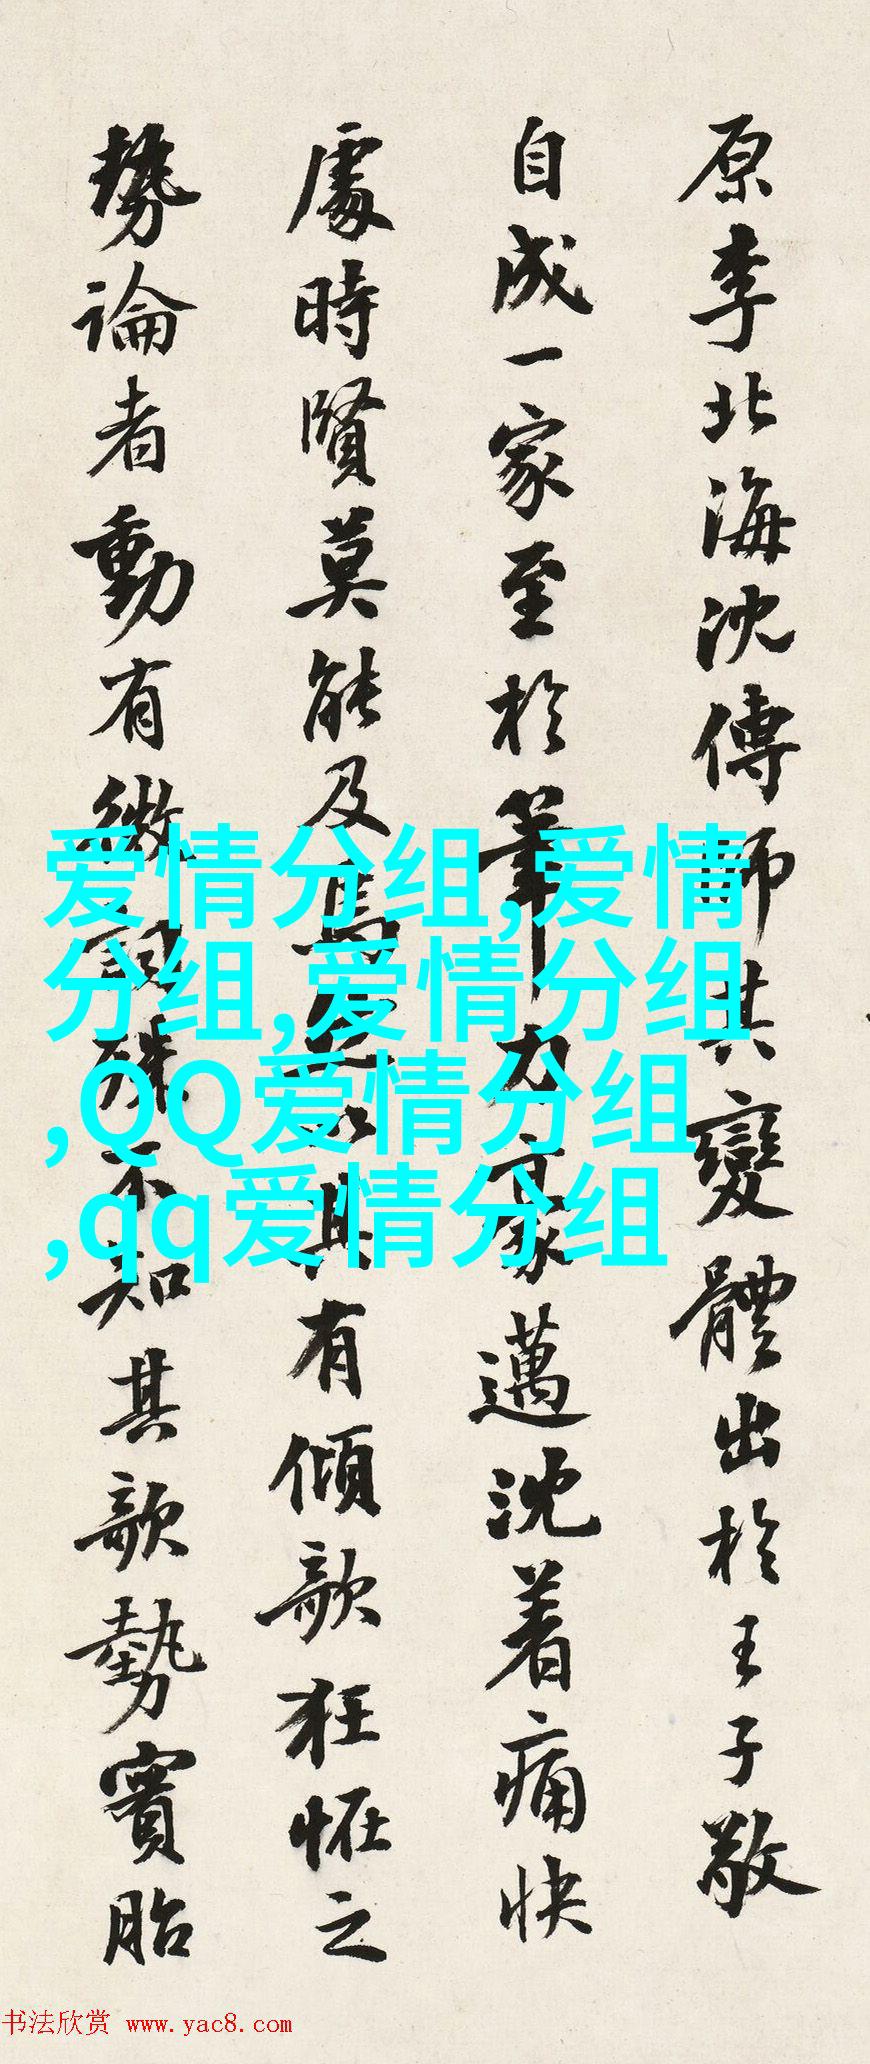 原李北海沈傳師其變體出於王子敬
自成一家至於筆力豪邁沈着痛快
處時賢莫能及焉以其有傾欹狂怪之
勢論者動有微詞殊不知其欹勢實胎
爱情分组,爱情
分组,爱情分组
,QQ爱情分组
,qq爱情分组
书法欣赏 www.yac8.com